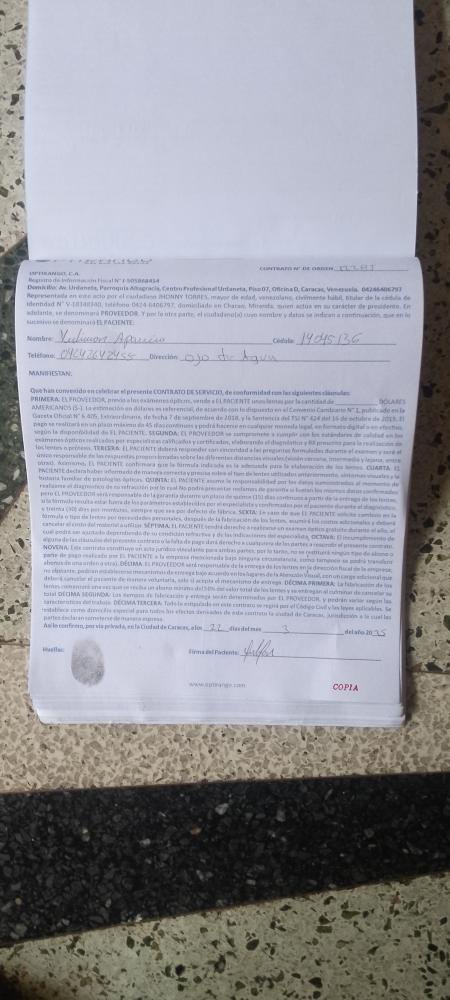 OPTIRANGO, C.A. CONTRATO N° DE ORDEN
Registro de Información Fiscal N° J-505868454
Domicilio: Av. Urdaneta, Parroquia Altagracia, Centro Profesional Urdaneta, Piso 07, Oficina D, Caracas, Venezuela. 04246406797
Representada en este acto por el ciudadano JHONNY TORRES, mayor de edad, venezolano, civilmente hábil, titular de la cédula de
identidad N° V-18348340, teléfono 0424-6406797, domiciliado en Chacao, Miranda, quien actúa en su carácter de presidente. En
adelante, se denominará PROVEEDOR. Y por la otra parte, el ciudadano(a) cuyo nombre y datos se indican a continuación, que en lo
sucesivo se denominará EL PACIENTE:
Nombre: Aparicio Cédula: 14045136
Teléfono: 04242642455 Dirección: ojo de Agua
MANIFIESTAN:
Que han convenido en celebrar el presente CONTRATO DE SERVICIO, de conformidad con las siguientes cláusulas:
PRIMERA: EL PROVEEDOR, previo a los exámenes ópticos, vende a EL PACIENTE unos lentes por la cantidad de DÓLARES
AMERICANOS ($-). La estimación en dólares es referencial, de acuerdo con lo dispuesto en el Convenio Cambiario N° 1, publicado en la
Gaceta Oficial N° 6.405, Extraordinario, de fecha 7 de septiembre de 2018, y la Sentencia del TSJ N° 424 del 16 de octubre de 2019. El
pago se realizará en un plazo máximo de 45 días continuos y podrá hacerse en cualquier moneda legal, en formato digital o en efectivo,
según la disponibilidad de EL PACIENTE. SEGUNDA: EL PROVEEDOR se compromete a cumplir con los estándares de calidad en los
exámenes ópticos realizados por especialistas calificados y certificados, elaborando el diagnóstico y RX prescrita para la realización de
los lentes o prótesis. TERCERA: EL PACIENTE deberá responder con sinceridad a las preguntas formuladas durante el examen y será el
único responsable de las respuestas proporcionadas sobre las diferentes distancias visuales (visión cercana, intermedia y lejana, entre
otras). Asimismo, EL PACIENTE confirmará que la fórmula indicada es la adecuada para la elaboración de los lentes. CUARTA: EL
PACIENTE declara haber informado de manera correcta y precisa sobre el tipo de lentes utilizados anteriormente, síntomas visuales y la
historia familiar de patologías ópticas. QUINTA: EL PACIENTE asume la responsabilidad por los datos suministrados al momento de
realizarse el diagnóstico de su refracción por lo cual No podrá presentar reclamos de garantía si fuesen los mismos datos confirmados
pero EL PROVEEDOR será responsable de la garantía durante un plazo de quince (15) días continuos a partir de la entrega de los lentes,
si la fórmula resulta estar fuera de los parámetros establecidos por el especialista y confirmados por el paciente durante el diagnóstico
y treinta (30) días por monturas, siempre que sea por defecto de fábrica. SEXTA: En caso de que EL PACIENTE solicite cambios en la
fórmula o tipo de lentes por necesidades personales, después de la fabricación de los lentes, asumirá los costos adicionales y deberá
cancelar el costo del material a utilizar. SÉPTIMA: EL PACIENTE tendrá derecho a realizarse un examen óptico gratuito durante el año, el
cual podrá ser ajustado dependiendo de su condición refractiva y de las indicaciones del especialista. OCTAVA: El incumplimiento de
alguna de las cláusulas del presente contrato o la falta de pago dará derecho a cualquiera de las partes a responder el presente contrato.
NOVENA: Este contrato constituye un acto jurídico vinculante para ambas partes, por lo tanto, no se restituirá ningún tipo de abono o
parte de pago realizado por EL PACIENTE a la empresa mencionada bajo ninguna circunstancia, como tampoco se podrá transferir
abonos de una orden a otra). DÉCIMA: EL PROVEEDOR será responsable de la entrega de los lentes en la dirección fiscal de la empresa;
no obstante, podrán establecerse mecanismos de entrega bajo acuerdo en los lugares de la Atención Visual, con un cargo adicional que
deberá cancelar el paciente de manera voluntaria, solo si acepta el mecanismo de entrega. DÉCIMA PRIMERA: La fabricación de los
lentes comenzará una vez que se reciba un abono mínimo del 50% del valor total de los lentes y se entregan al culminar de cancelar su
total DÉCIMA SEGUNDA: Los tiempos de fabricación y entrega serán determinados por EL PROVEEDOR, y podrán variar según las
características del trabajo. DÉCIMA TERCERA: Todo lo estipulado en este contrato se regirá por el Código Civil y las leyes aplicables. Se
establece como domicilio especial para todos los efectos derivados de este contrato la ciudad de Caracas, jurisdicción a la cual las
partes declaran someterse de manera expresa.
Así lo confirmo, por vía privada, en la Ciudad de Caracas, a los 22 días del mes 3 del año 2025
Huellas: Firma del Paciente:
www.optirango.com COPIA